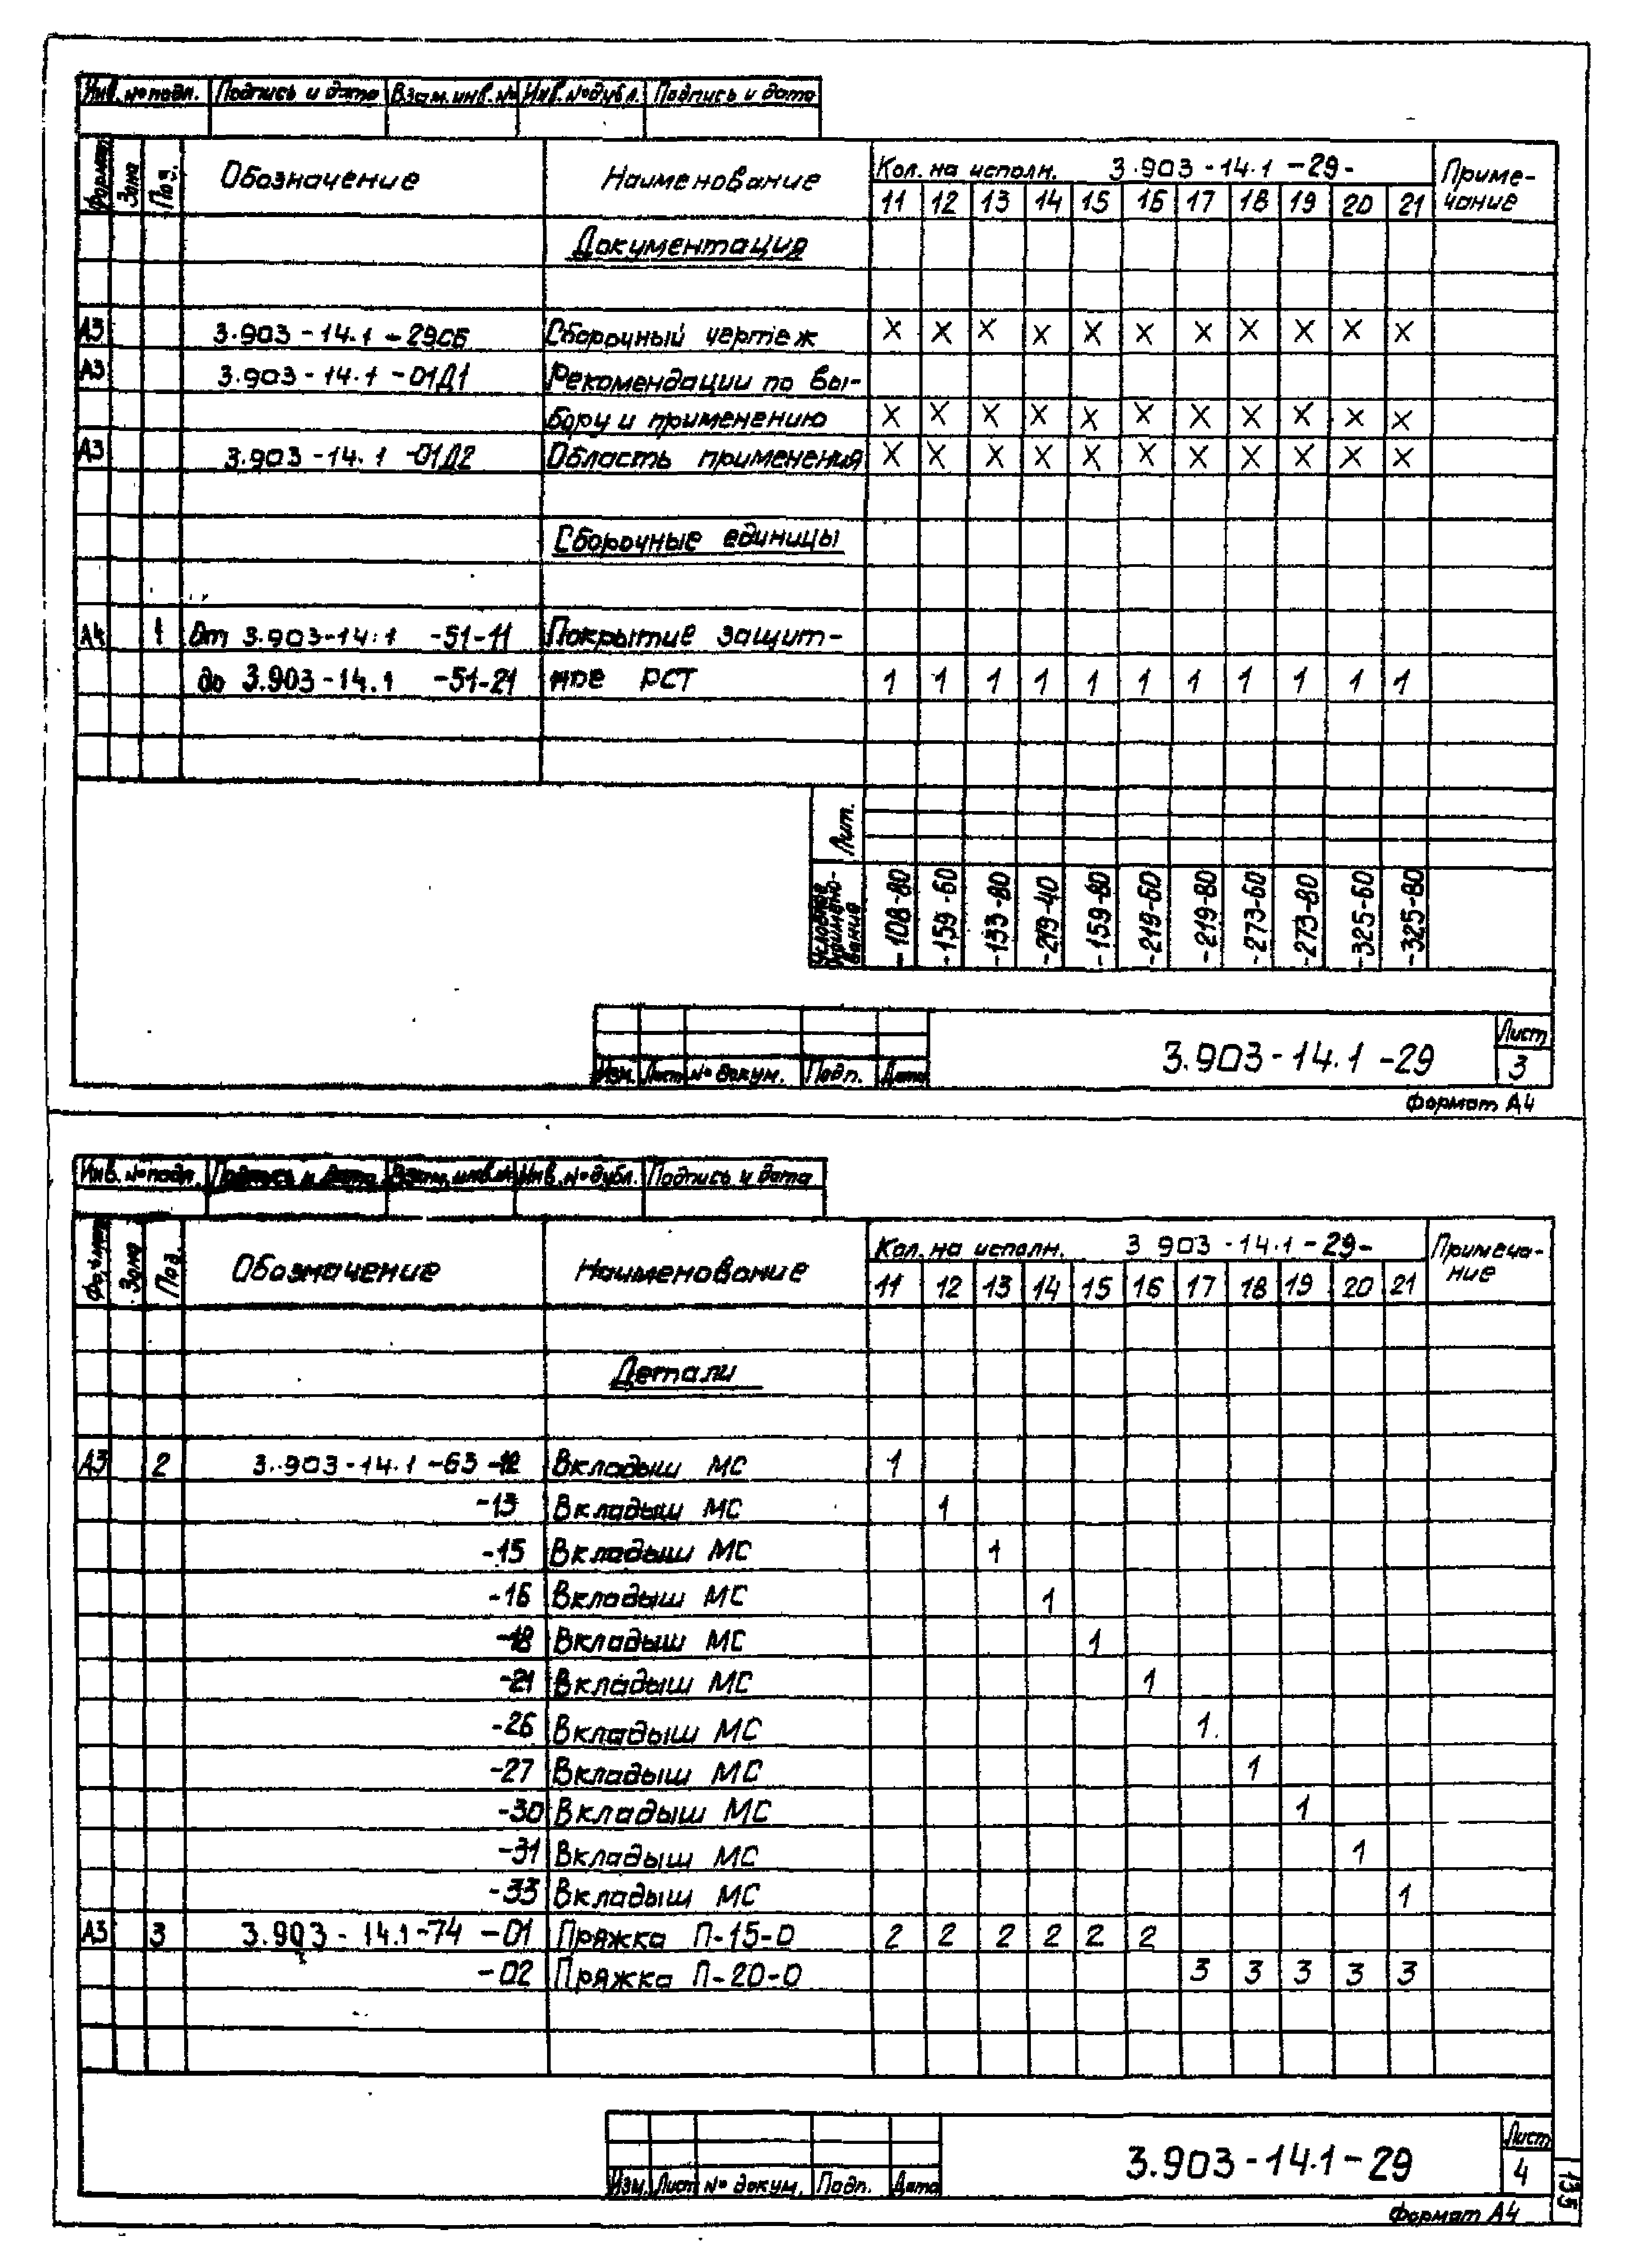 Инв. № подл. Подпись и дата Взам. инв. № Инв. № дубл. Подпись и дата
Формат Зона Поз. Обозначение Наименование Кол. на исполн. 3.903-14.1-29- Приме-
чание
11 12 13 14 15 16 17 18 19 20 21
Документация
А3 3.903-14.1-29СБ Сборочный чертеж X X X X X X X X X X X
А3 3.903-14.1-01Д1 Рекомендации по вы-
бору и применению X X X X X X X X X X X
А3 3.903-14.1-01Д2 Область применения X X X X X X X X X X X
Сборочные единицы
А4 1 От 3.903-14.1 -51-11 Покрытие защит-
до 3.903-14.1 -51-21 ное РСТ 1 1 1 1 1 1 1 1 1 1 1
Лит.
-108-80 -159-60 -133-80 -219-40 -159-80 -219-60 -219-80 -273-60 -273-80 -325-60 -325-80
Изм. Лист № докум. Подп. Дата
3.903-14.1-29
Лист
3
Формат А4
Инв. № подл. Подпись и дата Взам. инв. № Инв. № дубл. Подпись и дата
Формат Зона Поз. Обозначение Наименование Кол. на исполн. 3 903-14.1-29- Примеча-
ние
11 12 13 14 15 16 17 18 19 20 21
Детали
А3 2 3.903-14.1-63-12 Вкладыш МС 1
-13 Вкладыш МС 1
-15 Вкладыш МС 1
-16 Вкладыш МС 1
-18 Вкладыш МС 1
-21 Вкладыш МС 1
-26 Вкладыш МС 1
-27 Вкладыш МС 1
-30 Вкладыш МС 1
-31 Вкладыш МС 1
-33 Вкладыш МС 1
А3 3 3.903-14.1-74-01 Пряжка П-15-0 2 2 2 2 2 2
-02 Пряжка П-20-0 3 3 3 3 3
Изм. Лист № докум. Подп. Дата
3.903-14.1-29
Лист
4
Формат А4
135